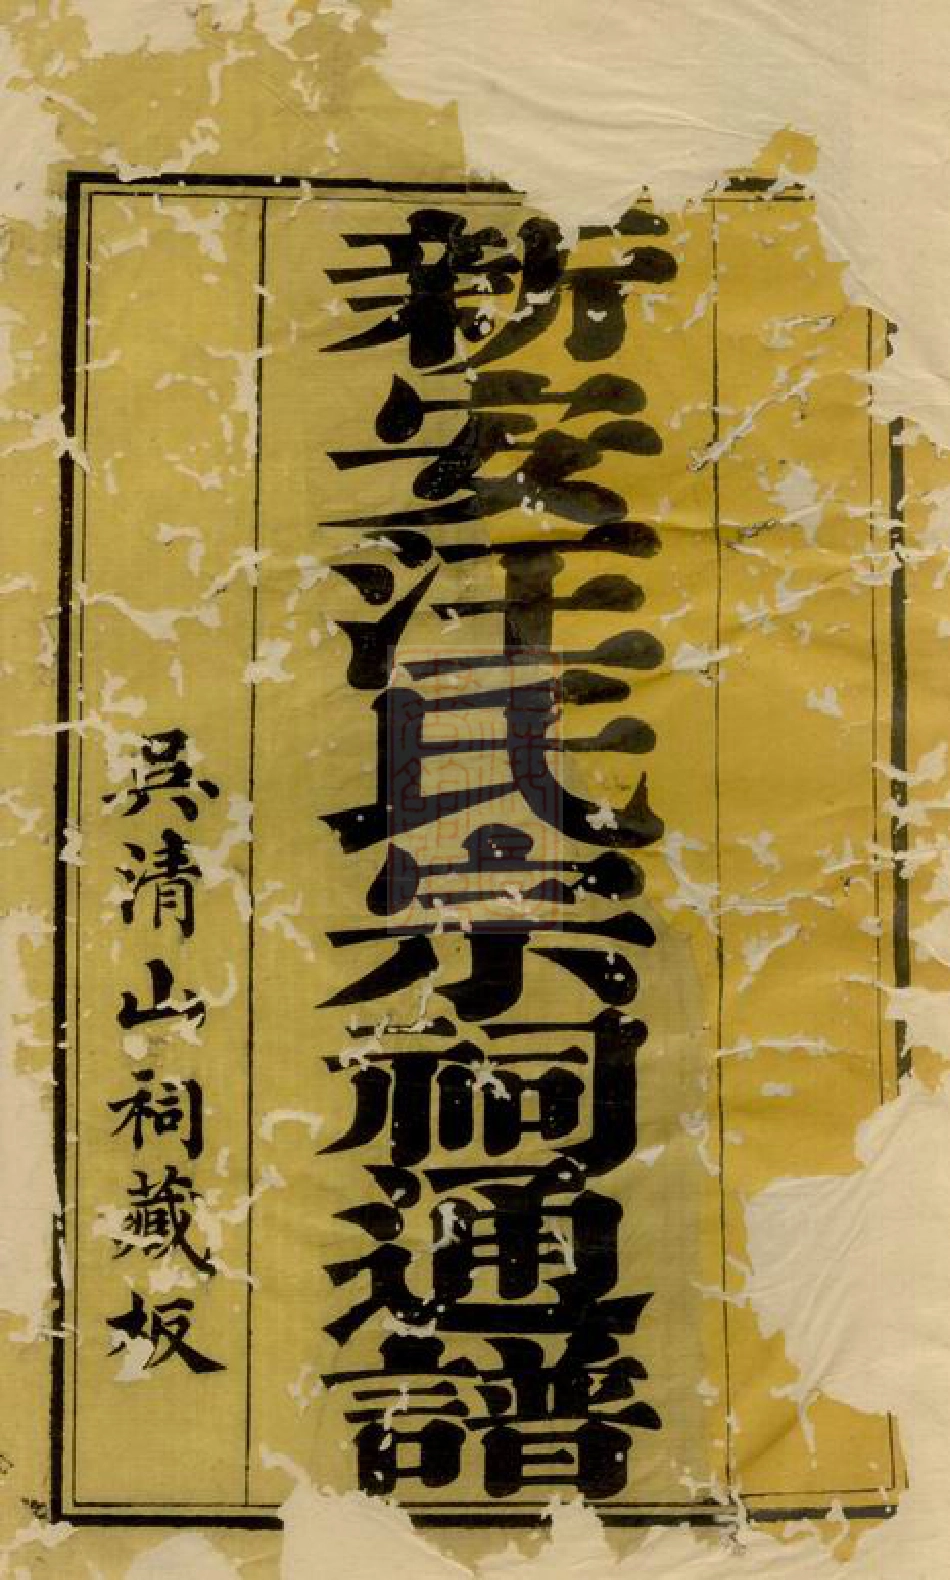 新安汪氏宗祠通譜
吳清山祠藏板